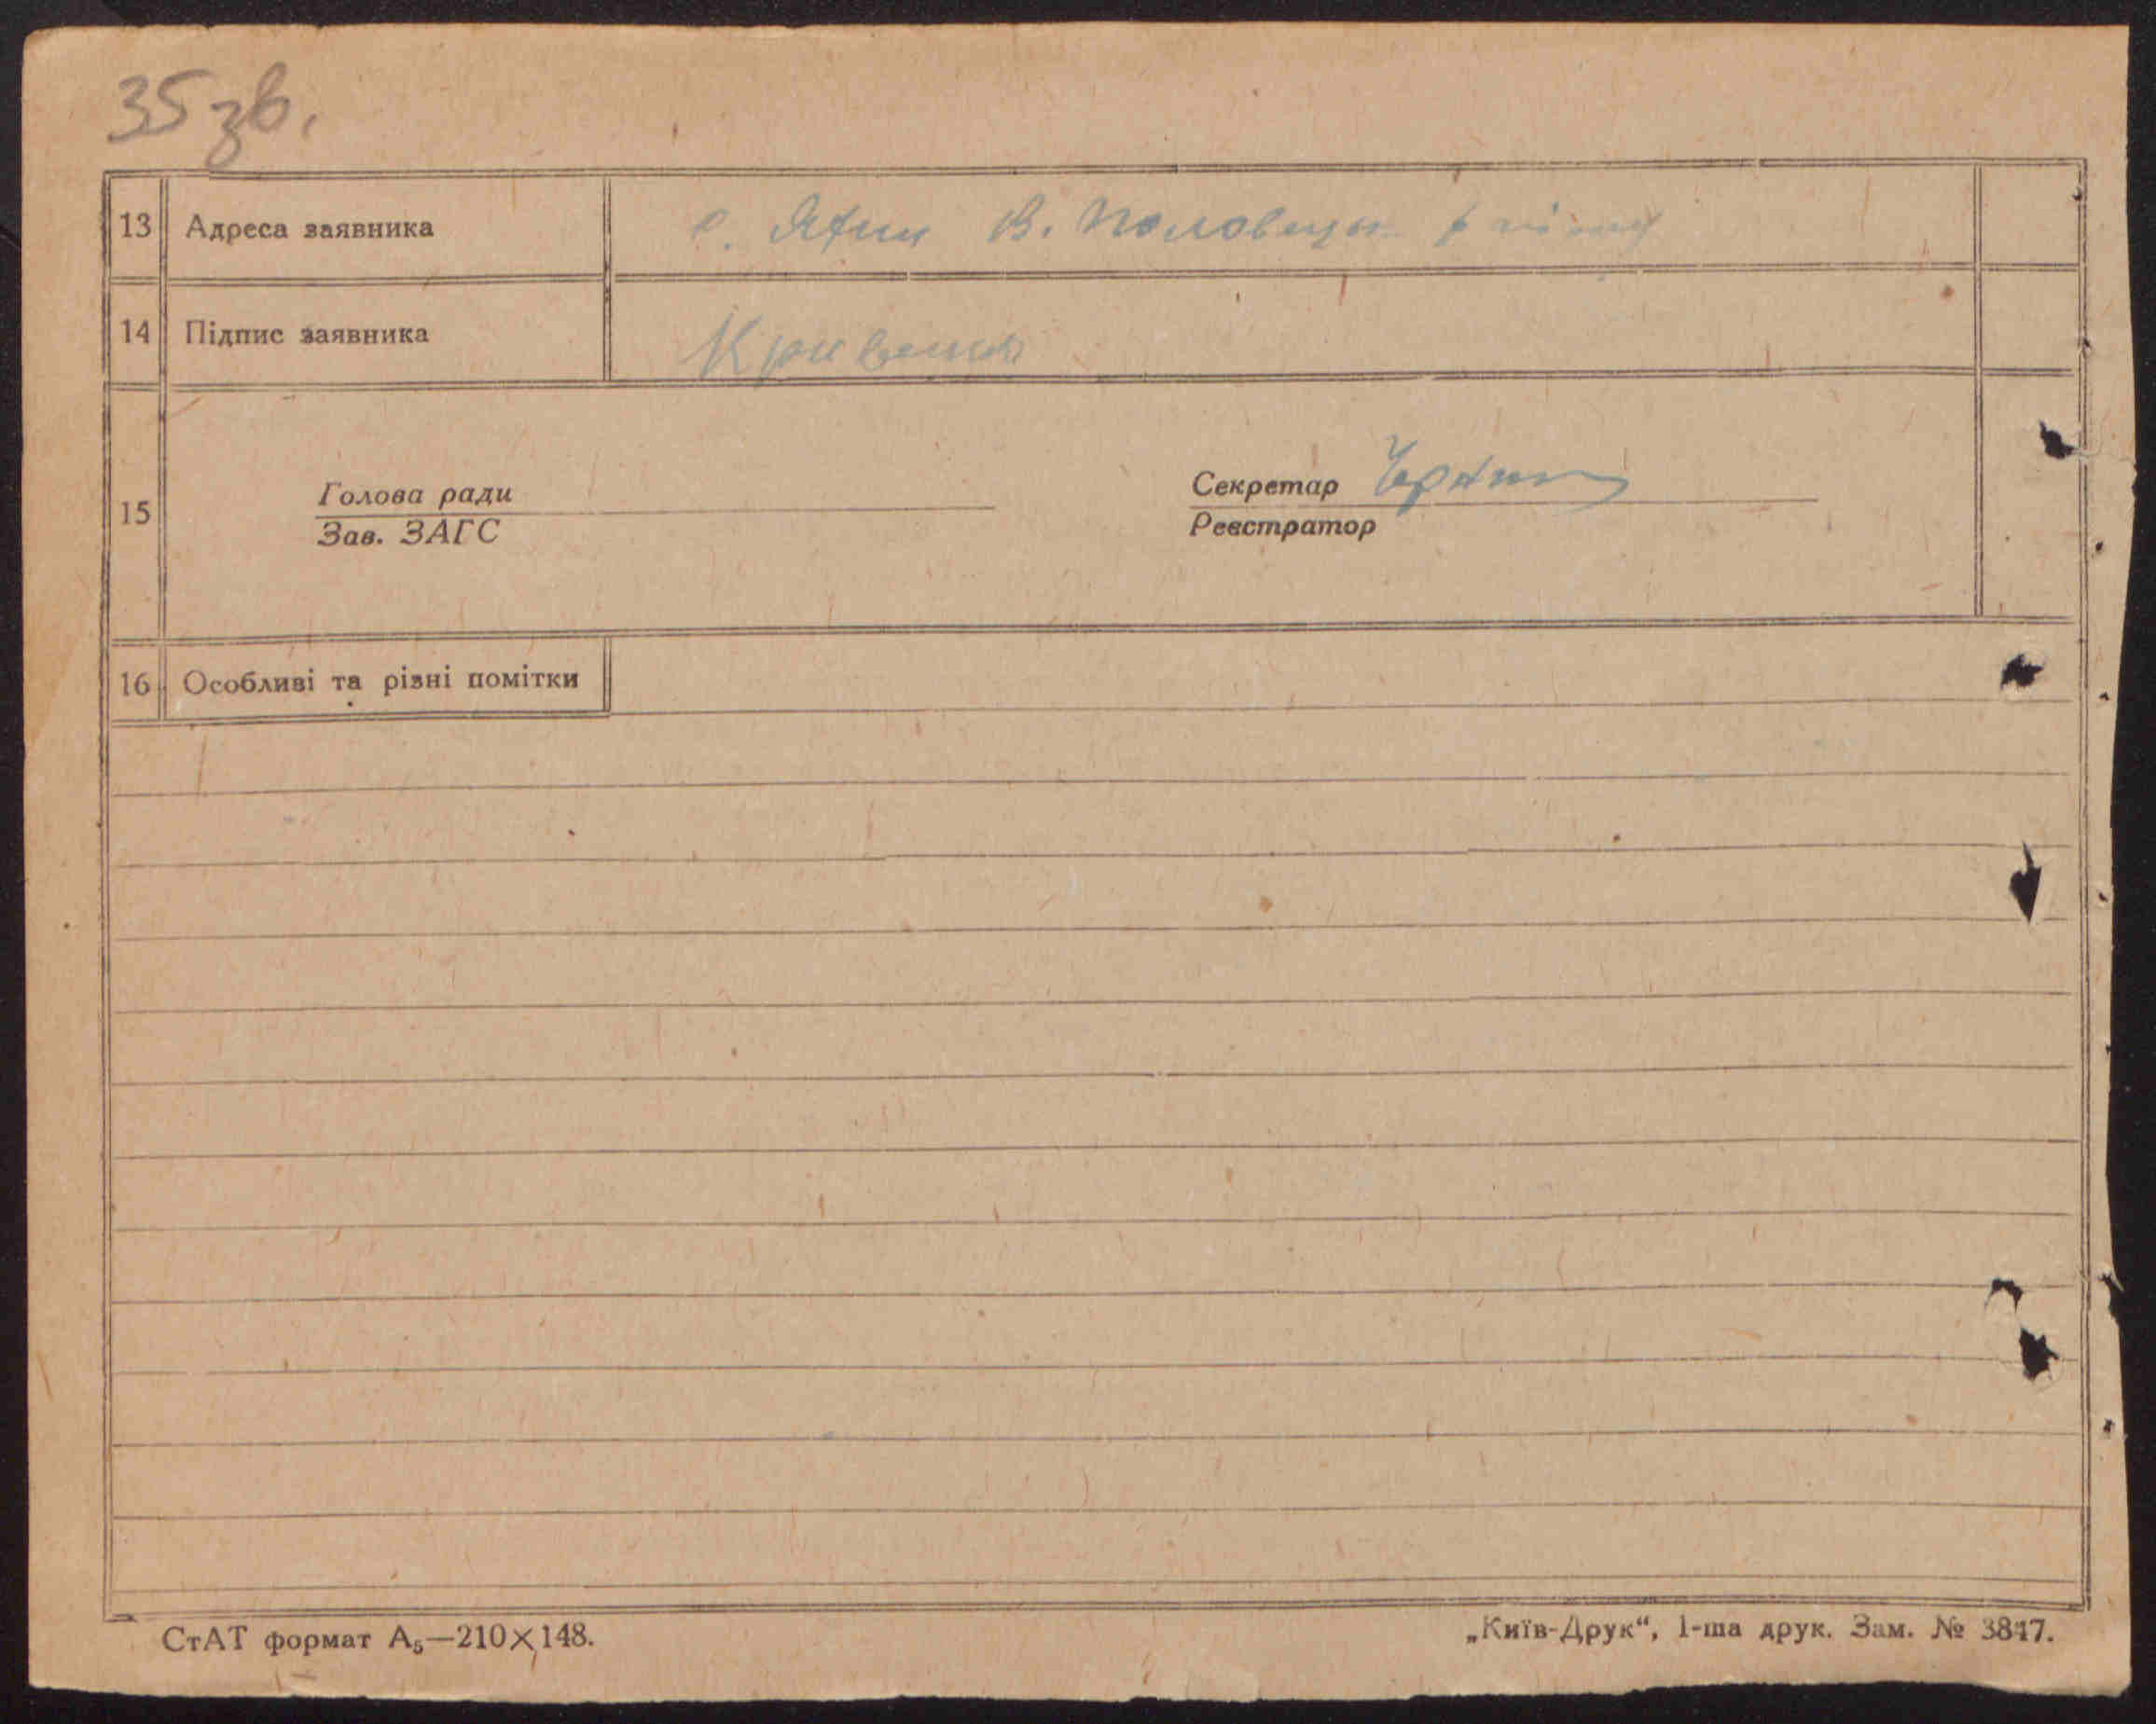 35 зв.
13 Адреса заявника с. В. Половецьк
14 Підпис заявника Кривенко
Голова ради Секретар
15
Зав. ЗАГС Реєстратор
16 Особливі та різні помітки
СтАТ формат А₅—210×148. „Київ-Друк“, 1-ша друк. Зам. № 3847.